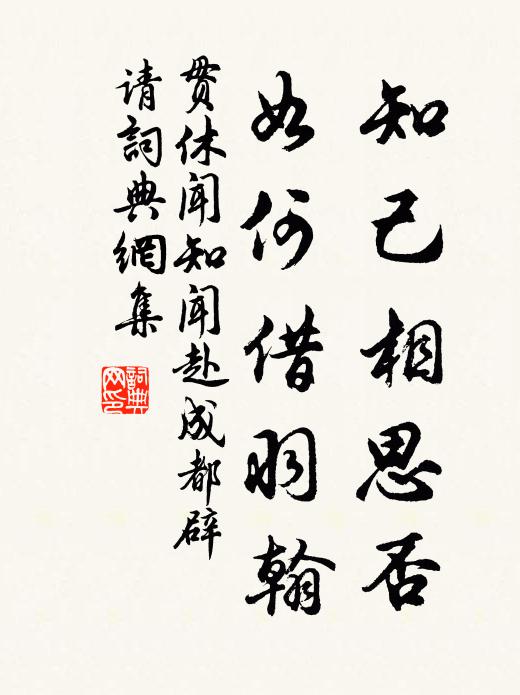 知己相思否
如何借羽翰
贯休闻知闻赴成都辟
请词典網集
詞典网印